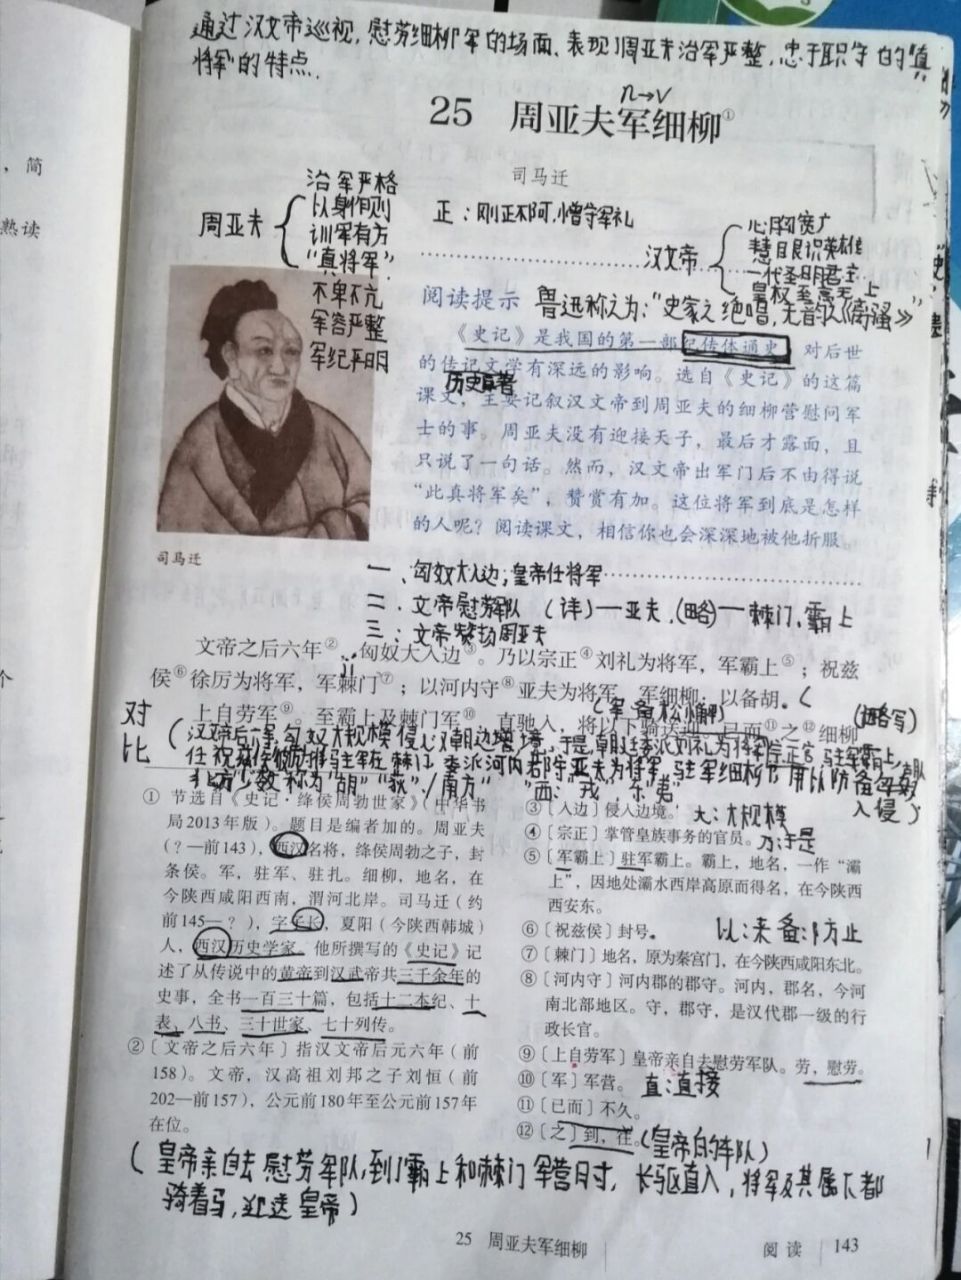 通过汉文帝巡视,慰劳细柳军的场面、表现周亚夫治军严整,忠于职守的"真
将军"的特点.
n→v
25 周亚夫军细柳①
司马迁
简
熟读
周亚夫
治军严格
以身作则
训军有方
"真将军"
不卑不亢
军容严整
军纪严明
正:刚正不阿,
守军礼
汉文帝
心胸宽广
慧眼识英雄
一代圣明君主
皇权至高无上
阅读提示
鲁迅称之为:"史家之绝唱,无韵之《离骚》"
《史记》是我国的第一部纪传体通史,对后世
的传记文学有深远的影响。选自《史记》的这篇
课文,主要记叙汉文帝到周亚夫的细柳营慰问军
士的事。周亚夫没有迎接天子,最后才露面,且
只说了一句话。然而,汉文帝出军门后不由得说
“此真将军矣”,赞赏有加。这位将军到底是怎样
的人呢?阅读课文,相信你也会深深地被他折服。
司马迁
一、匈奴大入边;皇帝任将军
二、文帝慰劳军队 (详)—亚夫.(略)—棘门、霸上
三:文帝赞扬周亚夫
文帝之后六年②,匈奴大入边③。乃以宗正④刘礼为将军,军霸上⑤;祝兹
侯⑥徐厉为将军,军棘门⑦;以河内守⑧亚夫为将军,军细柳:以备胡。
上自劳军⑨。至霸上及棘门军⑩,直驰入,将以下骑送迎。已而⑪之⑫细柳
对比
(汉文帝后
匈奴大规模侵
汉朝边境,于是,朝廷委派刘礼为将军
驻军霸上,
任祝兹侯
将军驻军在棘门,委派河内郡守亚夫为将军,驻军细柳,用以防备匈奴
入侵)
北方少数称为"胡""狄"/南方"
"西:"戎",东"夷"
① 节选自《史记·绛侯周勃世家》(中华书
局2013年版)。题目是编者加的。周亚夫
(?—前143),西汉名将,绛侯周勃之子,封
条侯。军,驻军、驻扎。细柳,地名,在
今陕西咸阳西南,渭河北岸。司马迁(约
前145—?),字子长,夏阳(今陕西韩城)
人,西汉历史学家。他所撰写的《史记》记
述了从传说中的黄帝到汉武帝共三千余年的
史事,全书一百三十篇,包括十二本纪、十
表、八书、三十世家、七十列传。
②〔文帝之后六年〕指汉文帝后元六年(前
158)。文帝,汉高祖刘邦之子刘恒(前
202—前157),公元前180年至公元前157年
在位。
③〔入边〕侵入边境。 大:大规模
④〔宗正〕掌管皇族事务的官员。 乃:于是
⑤〔军霸上〕驻军霸上。霸上,地名,一作“灞
上”,因地处灞水西岸高原而得名,在今陕西
西安东。
⑥〔祝兹侯〕封号。 以:来 备:防止
⑦〔棘门〕地名,原为秦宫门,在今陕西咸阳东北。
⑧〔河内守〕河内郡的郡守。河内,郡名,今河
南北部地区。守,郡守,是汉代郡一级的行
政长官。
⑨〔上自劳军〕皇帝亲自去慰劳军队。劳,慰劳。
⑩〔军〕军营。 直:直接
⑪〔已而〕不久。
⑫〔之〕到,往。(皇帝的车队)
(皇帝亲自去慰劳军队,到了霸上和棘门军营时,长驱直入,将军及其属下都
骑着马,迎送皇帝)
25 周亚夫军细柳 阅读 143